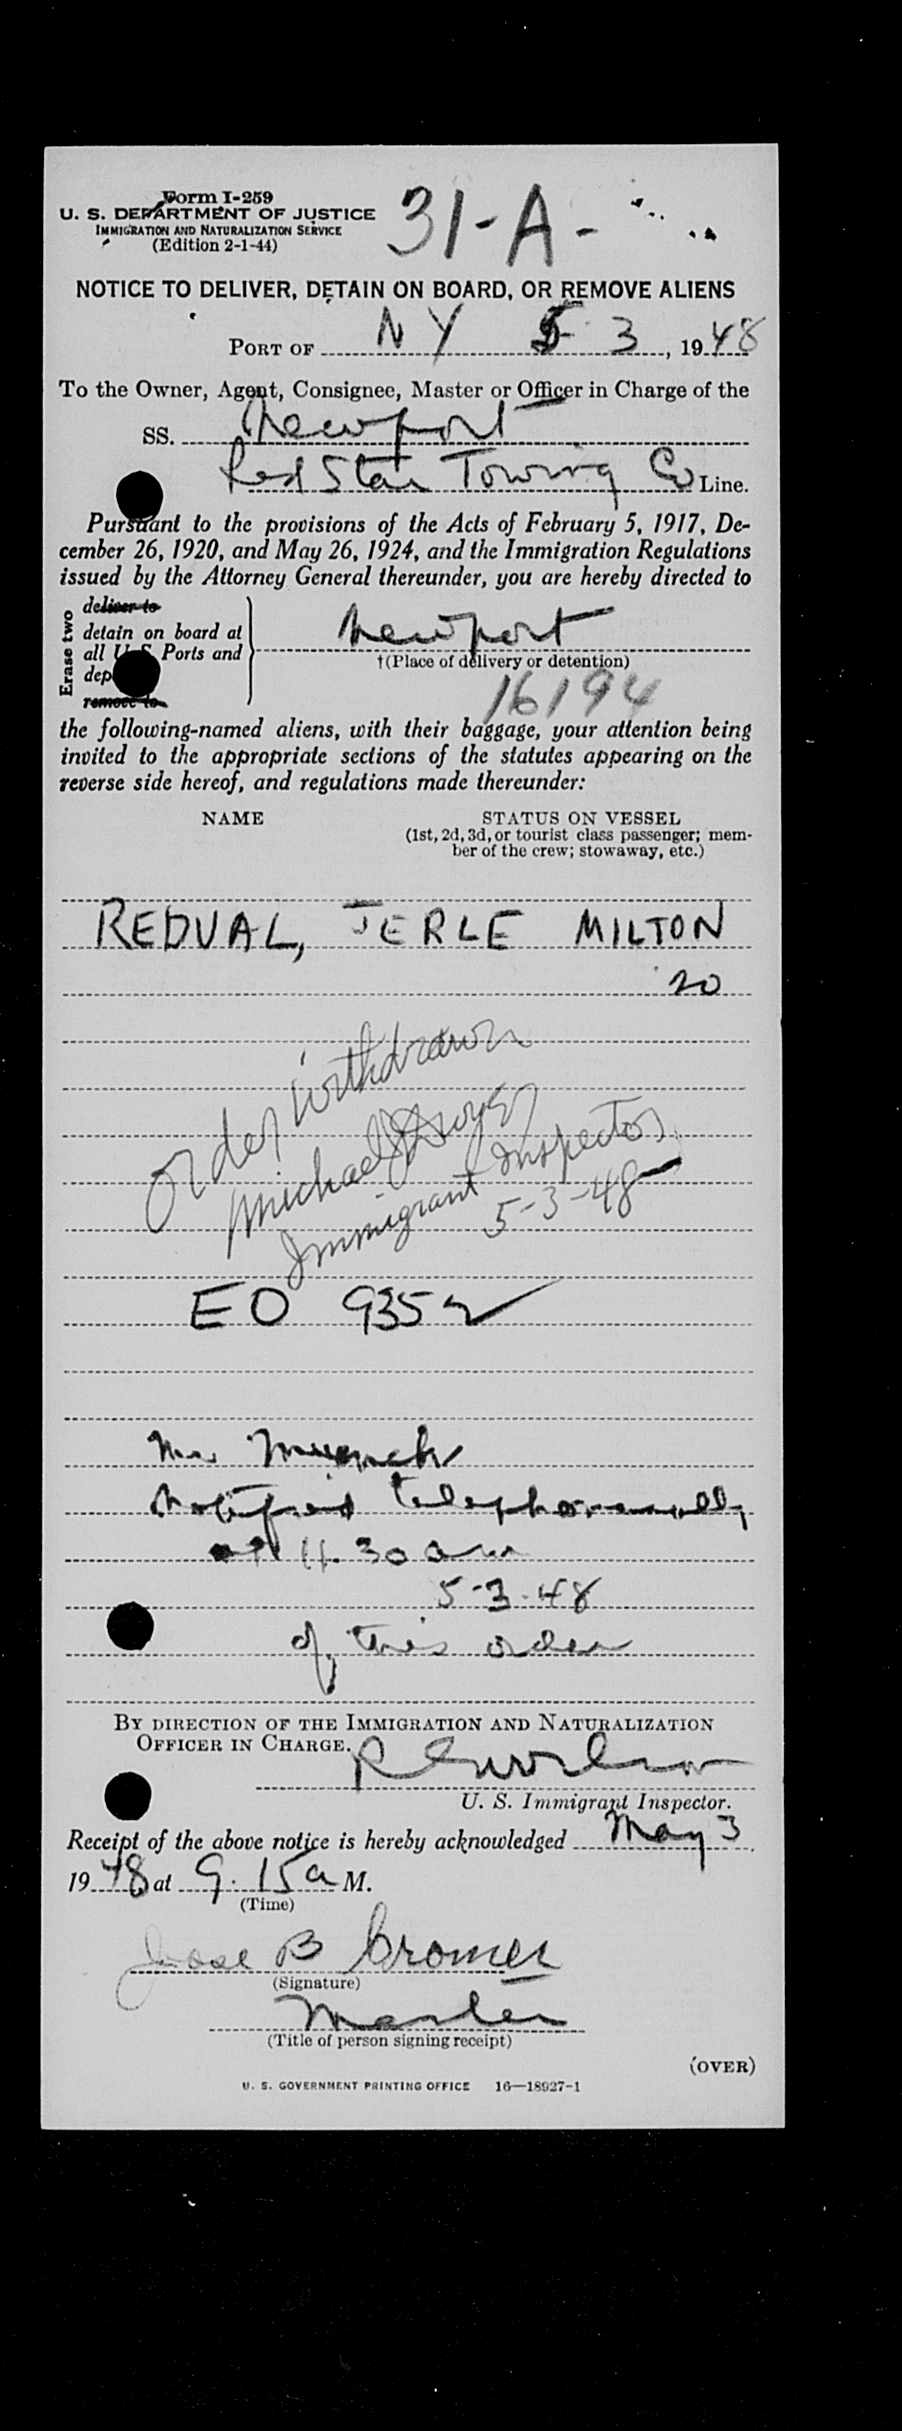 Form I-259
U. S. DEPARTMENT OF JUSTICE
IMMIGRATION AND NATURALIZATION SERVICE
(Edition 2-1-44)
31-A-
NOTICE TO DELIVER, DETAIN ON BOARD, OR REMOVE ALIENS
PORT OF NY 5 3, 1948
To the Owner, Agent, Consignee, Master or Officer in Charge of the
SS. Newport
Red Star Towing Co Line.
Pursuant to the provisions of the Acts of February 5, 1917, De-
cember 26, 1920, and May 26, 1924, and the Immigration Regulations
issued by the Attorney General thereunder, you are hereby directed to
Erase two
deliver to
detain on board at
all U. S. Ports and
dep
remove to
Newport
†(Place of delivery or detention)
16194
the following-named aliens, with their baggage, your attention being
invited to the appropriate sections of the statutes appearing on the
reverse side hereof, and regulations made thereunder:
NAME
STATUS ON VESSEL
(1st, 2d, 3d, or tourist class passenger; mem-
ber of the crew; stowaway, etc.)
REDVAL, JERLE MILTON
20
Order withdrawn
Michael J Dwyer
Immigrant Inspector
5-3-48
EO 9352
Mr
Notified telephonically
at 11.30 am
5-3-48
of this order
BY DIRECTION OF THE IMMIGRATION AND NATURALIZATION
OFFICER IN CHARGE.
U. S. Immigrant Inspector.
Receipt of the above notice is hereby acknowledged May 3
1948 at 9.15 a M.
(Time)
B Cromer
(Signature)
Master
(Title of person signing receipt)
(OVER)
U. S. GOVERNMENT PRINTING OFFICE 16—18927-1